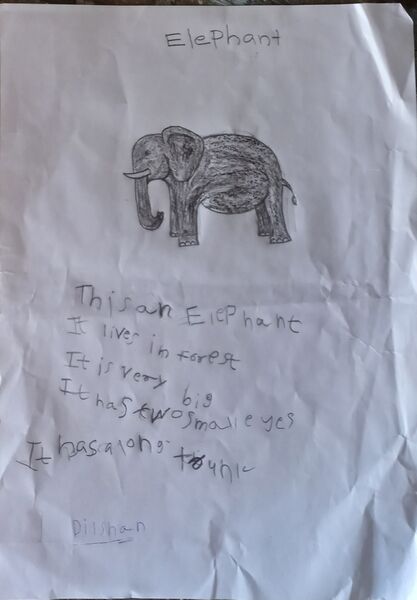 Elephant
This an Elephant
It lives in forest
It is very big
It has two small eyes
It has a long trunk
Dilshan